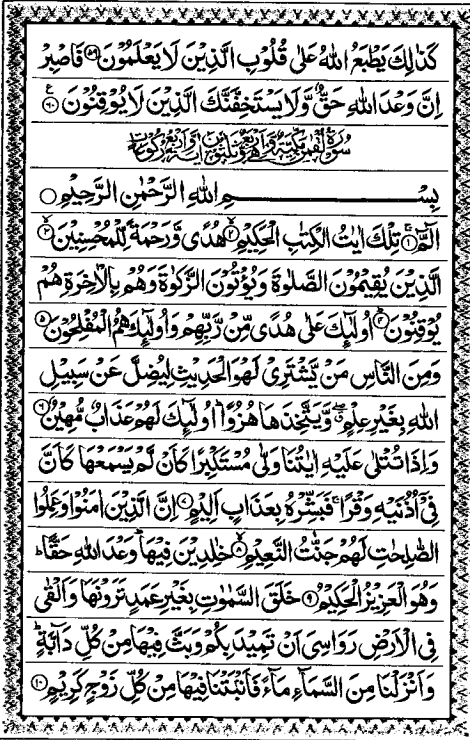 كَذٰلِكَ يَطْبَعُ اللهُ عَلٰى قُلُوْبِ الَّذِيْنَ لَا يَعْلَمُوْنَ ﴿۵۹﴾ فَاصْبِرْ
اِنَّ وَعْدَ اللهِ حَقٌّ وَّلَا يَسْتَخِفَّنَّكَ الَّذِيْنَ لَا يُوْقِنُوْنَ ﴿۶۰﴾
سُوْرَةُ لُقْمٰنَ مَكِّيَّةٌ وَّهِيَ اَرْبَعٌ وَّثَلٰثُوْنَ اٰيَةً وَّاَرْبَعُ رُكُوْعَاتٍ
بِسْمِ اللهِ الرَّحْمٰنِ الرَّحِيْمِ
الٓمّٓ ﴿۱﴾ تِلْكَ اٰيٰتُ الْكِتٰبِ الْحَكِيْمِ ﴿۲﴾ هُدًى وَّرَحْمَةً لِّلْمُحْسِنِيْنَ ﴿۳﴾
الَّذِيْنَ يُقِيْمُوْنَ الصَّلٰوةَ وَيُؤْتُوْنَ الزَّكٰوةَ وَهُمْ بِالْاٰخِرَةِ هُمْ
يُوْقِنُوْنَ ﴿۴﴾ اُولٰٓئِكَ عَلٰى هُدًى مِّنْ رَّبِّهِمْ وَاُولٰٓئِكَ هُمُ الْمُفْلِحُوْنَ ﴿۵﴾
وَمِنَ النَّاسِ مَنْ يَّشْتَرِىْ لَهْوَ الْحَدِيْثِ لِيُضِلَّ عَنْ سَبِيْلِ
اللهِ بِغَيْرِ عِلْمٍ وَّيَتَّخِذَهَا هُزُوًا اُولٰٓئِكَ لَهُمْ عَذَابٌ مُّهِيْنٌ ﴿۶﴾
وَاِذَا تُتْلٰى عَلَيْهِ اٰيٰتُنَا وَلّٰى مُسْتَكْبِرًا كَاَنْ لَّمْ يَسْمَعْهَا كَاَنَّ
فِىْٓ اُذُنَيْهِ وَقْرًا فَبَشِّرْهُ بِعَذَابٍ اَلِيْمٍ ﴿۷﴾ اِنَّ الَّذِيْنَ اٰمَنُوْا وَعَمِلُوا
الصّٰلِحٰتِ لَهُمْ جَنّٰتُ النَّعِيْمِ ﴿۸﴾ خٰلِدِيْنَ فِيْهَا وَعْدَ اللهِ حَقًّا ط
وَهُوَ الْعَزِيْزُ الْحَكِيْمُ ﴿۹﴾ خَلَقَ السَّمٰوٰتِ بِغَيْرِ عَمَدٍ تَرَوْنَهَا وَاَلْقٰى
فِى الْاَرْضِ رَوَاسِىَ اَنْ تَمِيْدَ بِكُمْ وَبَثَّ فِيْهَا مِنْ كُلِّ دَآبَّةٍ ط
وَاَنْزَلْنَا مِنَ السَّمَآءِ مَآءً فَاَنْۢبَتْنَا فِيْهَا مِنْ كُلِّ زَوْجٍ كَرِيْمٍ ﴿۱۰﴾